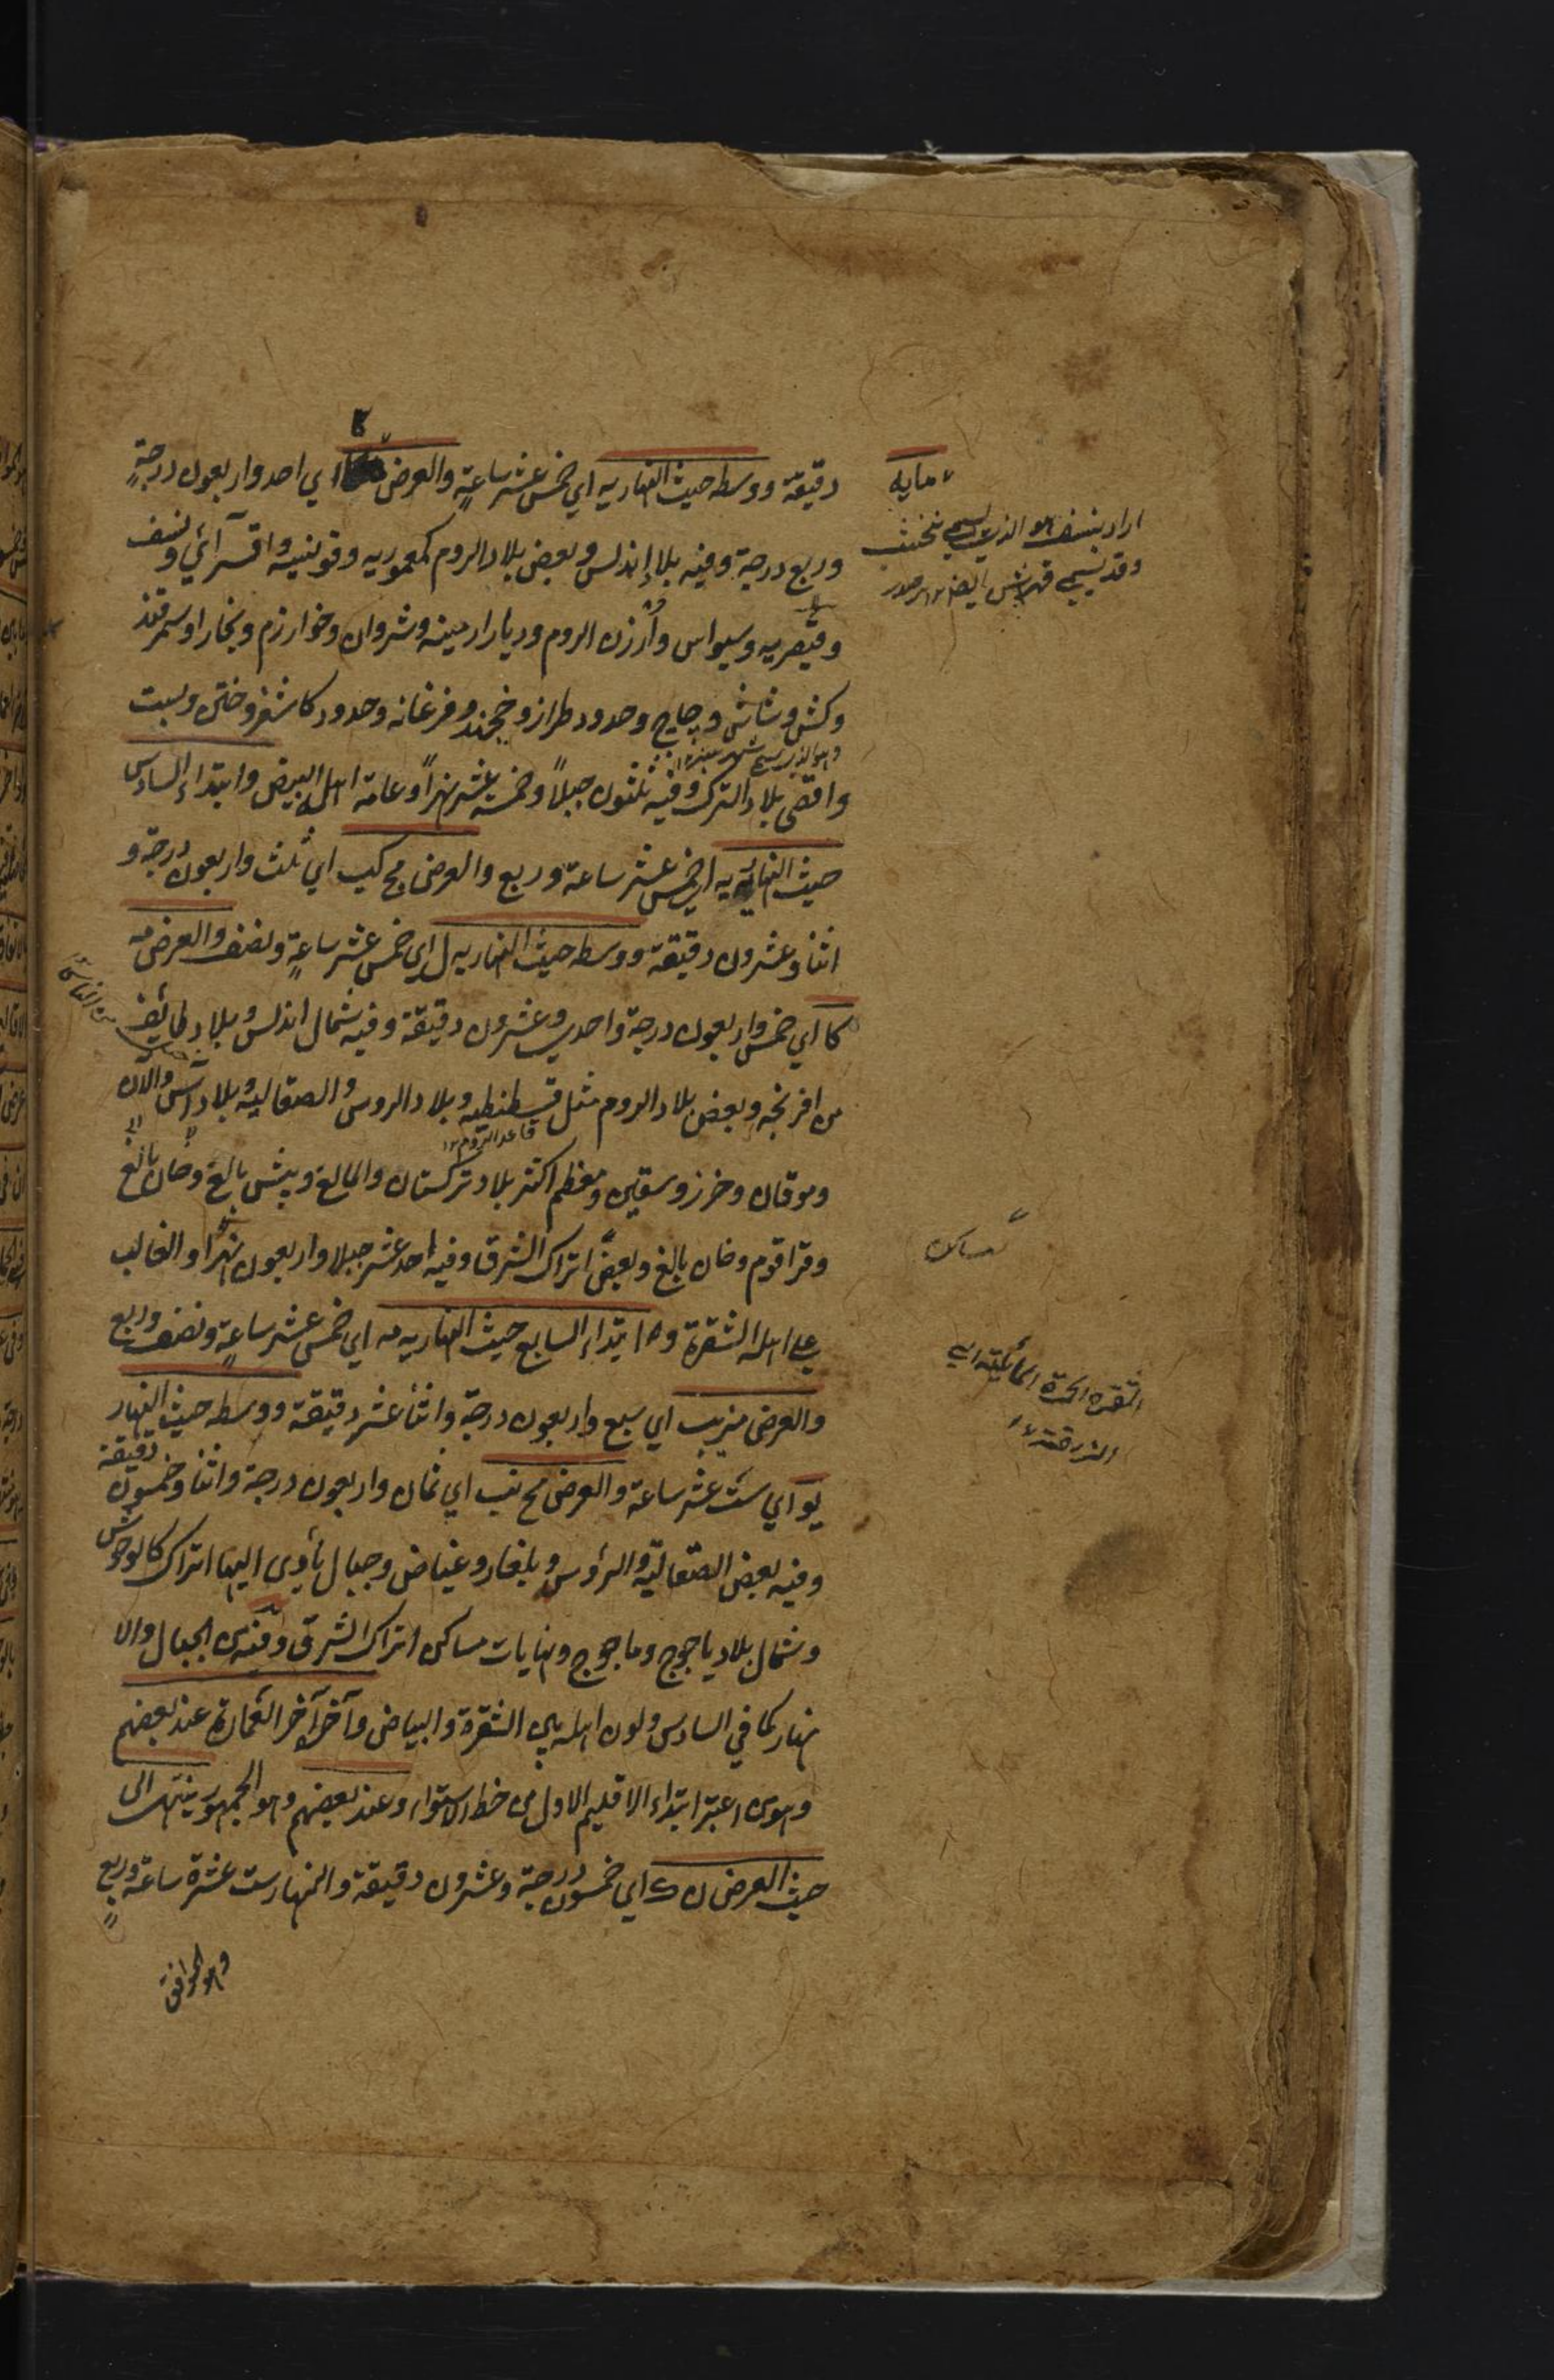 دقيقة ووسطه حيث النهار يه اي خمس عشر ساعةٍ والعرض اي احد واربعون درجةٍ
وربع درجة وفيه بلاد اندلس وبعض بلاد الروم كعموريه وقونيه واقسرائي ونسف
وقيصريه وسيواس وأرزن الروم وديار ارمينه وشروان وخوارزم وبخارا وسمرقند
وكش وشاش وچاچ وحدود طراز وخجند وفرغانه وحدود كاشغر وختن وبست
واقصى بلاد الترك وفيه ثلثون جبلاً وخمسة عشر نهراً وعامة اهله البيض وابتداء السادس
حيث النهار يه اي خمس عشر ساعة وربع والعرض مج كب اي ثلث واربعون درجة و
اثنا وعشرون دقيقة ووسطه حيث النهار يه ل اي خمس عشر ساعةٍ ونصف والعرض مه
كا اي خمس واربعون درجة واحدى وعشرون دقيقة وفيه شمال اندلس وبلاد طائفة
من افرنجه وبعض بلاد الروم مثل قسطنطيه وبلاد الروس والصقالبه وبلاد آس والان
قاعد الروم ١٢
وموقان وخرز وسقين ومعظم اكثر بلاد تركستان والمالغ وبيش بالغ وخان بالغ
وقراقوم وخان بالغ وبعض اتراك الشرق وفيه احد عشر جبلا واربعون نهرا والغالب
على اهله الشقرة وه ابتداء السابع حيث النهار يه مه اي خمس عشر ساعةٍ ونصف وربع
والعرض مز يب اي سبع واربعون درجة واثنا عشر دقيقة ووسطه حيث النهار
يو اي ست عشر ساعة والعرض مح نب اي ثمان واربعون درجة واثنا وخمسون دقيقة
وفيه بعض الصقالبة والروس وبلغار وغياض وجبال يأوى اليها اتراك كالوحوش
وشمال بلاد ياجوج وماجوج ونهايات مساكن اتراك الشرق وفيه من الجبال والا
نهار كما في السادس ولون اهله بين الشقرة والبياض وآخره آخر العمارة عند بعضهم
وهو من اعتبر ابتداء الاقليم الاول من خط الاستواء وعند بعضهم وهو الجمهور ينتهى الى
حيث العرض ن ك اي خمسون درجة وعشرون دقيقة والنهار ست عشرة ساعة وربع
وهو الموافق
اراد بنسف هو الذي يسمى نخشب
الشقرة الحمرة المائلة الى
الزرقة ١٢